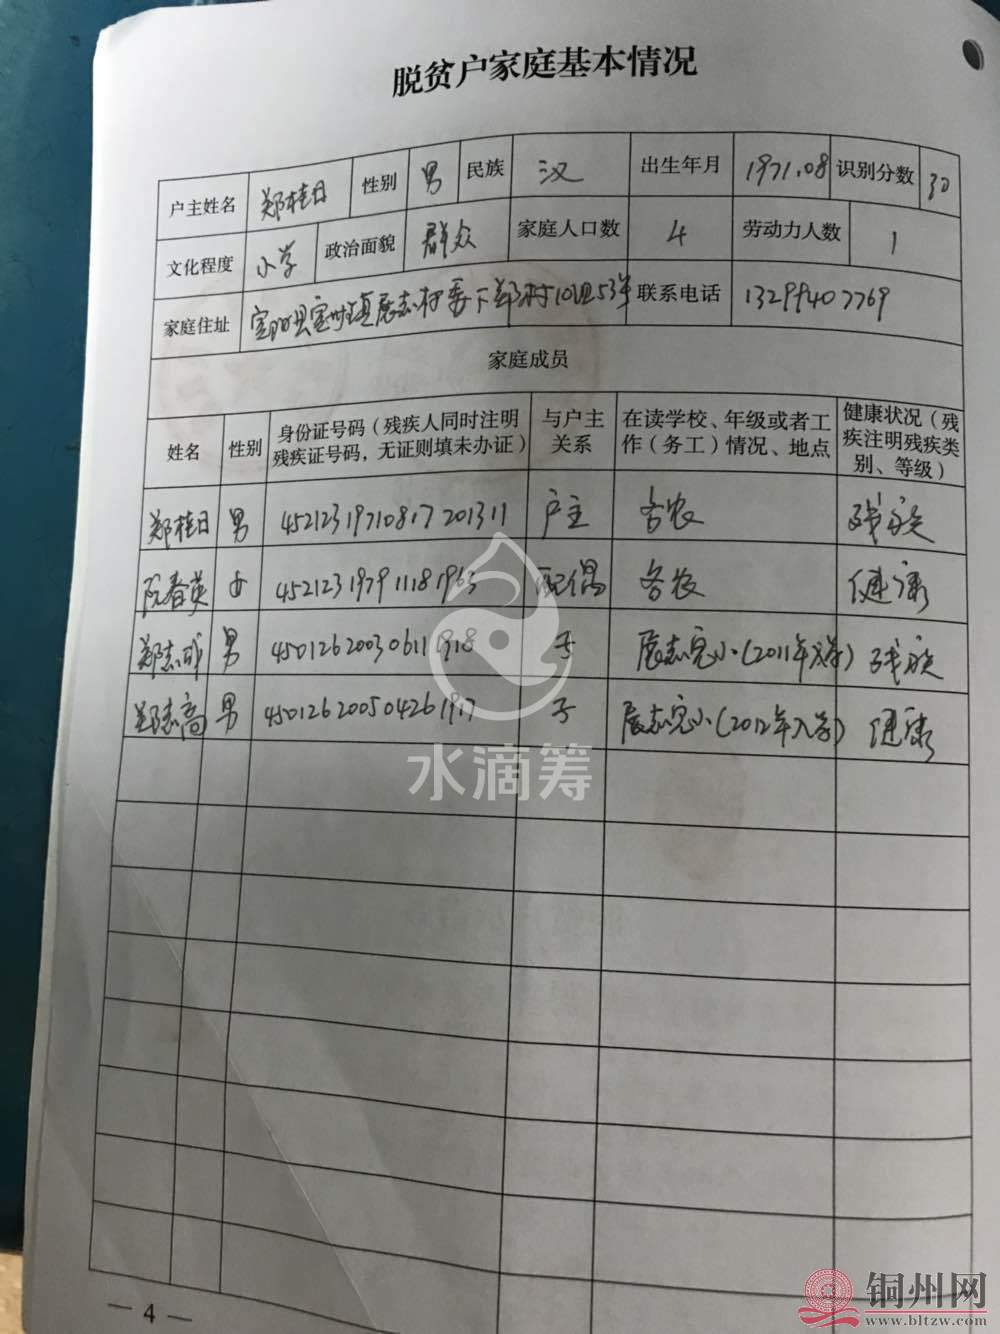 脱贫户家庭基本情况
户主姓名 郑桂日 性别 男 民族 汉 出生年月 1971.08 识别分数 30
文化程度 小学 政治面貌 群众 家庭人口数 4 劳动力人数 1
家庭住址 宾阳县宾州镇展志村委下郑村10组53号 联系电话 13299407769
家庭成员
姓名 性别 身份证号码（残疾人同时注明残疾证号码，无证则填未办证） 与户主关系 在读学校、年级或者工作（务工）情况、地点 健康状况（残疾注明残疾类别、等级）
郑桂日 男 户主 务农 残疾
阮春英 女 配偶 务农 健康
郑志成 男 子 展志完小(2011年入学) 残疾
郑志高 男 子 展志完小(2012年入学) 健康
水滴筹
— 4 —
铜州网
www.bltzw.com